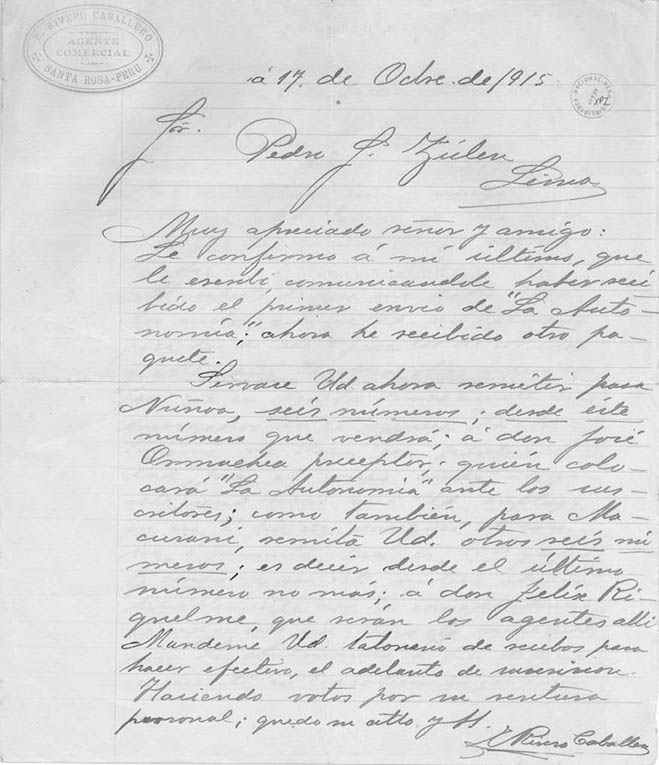 RIVERO CABALLERO
AGENTE
COMERCIAL
SANTA ROSA-PERU
á 17. de Octre. de 1915
Sór.
Pedro S. Zúlen
Lima
Muy apreciado señor y amigo:
Le confirmo á mi último, que
le escribí, comunicandole haber reci
bido el primer envio de "La Auto-
nomía"; ahora he recibido otro pa-
quete.
Sírvace Ud. ahora remitir para
Nuñoa, seis números; desde éste
número que vendrá; á don José
Ormachea preceptor; quién colo-
cará "La Autonomia" ante los sus-
critores; como también, para Ma-
curani, remita Ud. otros seis nú
meros; es decir desde el último
número no más; á don Felix Ri-
quelme, que serán los agentes allí
Mandeme Ud. talonario de recibos para
hacer efectivo, el adelanto de suscricion.
Haciendo votos por su ventura
personal; quedo su atto. y SS.
Rivero Caballero